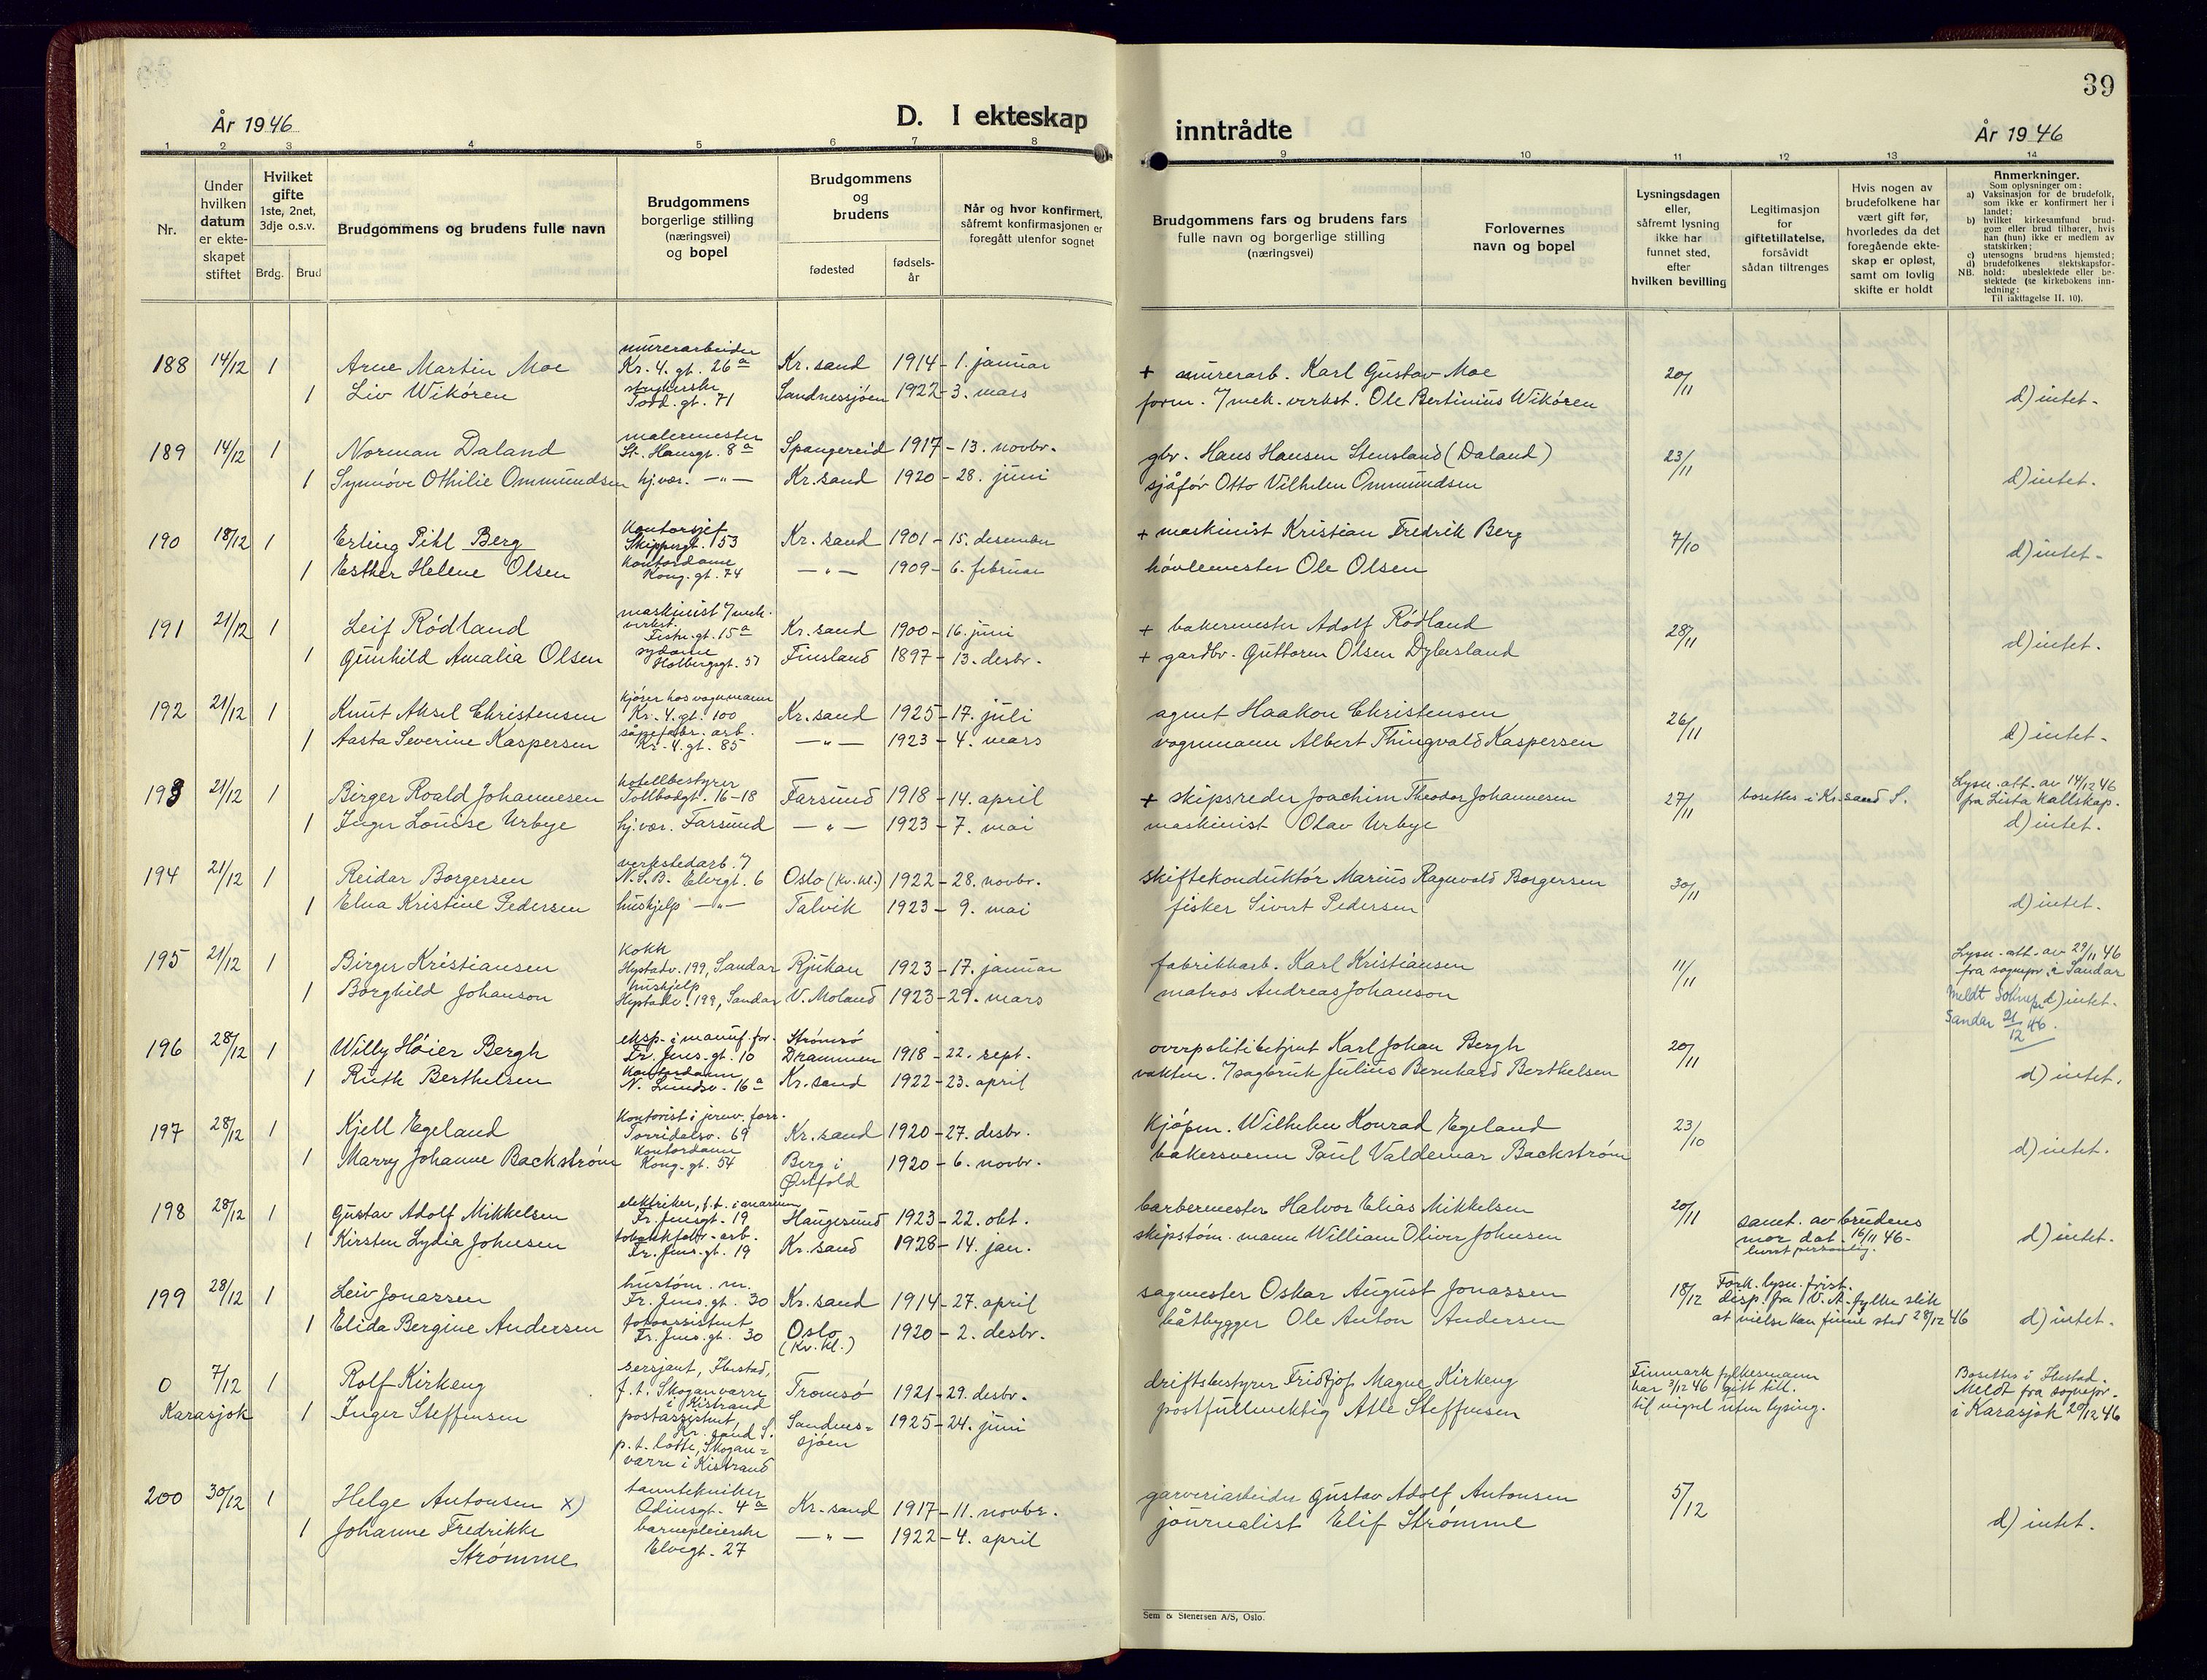 39
År 1946
D. I ekteskap inntrådte
År 1946
1 2 3 4 5 6 7 8 9 10 11 12 13 14
Nr.
Under hvilken datum er ekte-skapet stiftet
Hvilket gifte 1ste, 2net, 3dje o.s.v.
Brdg. Brud
Brudgommens og brudens fulle navn
Brudgommens borgerlige stilling (næringsvei) og bopel
Brudgommens og brudens
fødested
fødsels-år
Når og hvor konfirmert, såfremt konfirmasjonen er foregått utenfor sognet
Brudgommens fars og brudens fars fulle navn og borgerlige stilling (næringsvei)
Forlovernes navn og bopel
Lysningsdagen eller, såfremt lysning ikke har funnet sted, efter hvilken bevilling
Legitimasjon for giftetillatelse, forsåvidt sådan tiltrenges
Hvis nogen av brudefolkene har vært gift før, hvorledes da det foregående ekte-skap er opløst, samt om lovlig skifte er holdt
Anmerkninger.
Som oplysninger om:
a) Vaksinasjon for de brudefolk, som ikke er konfirmert her i landet;
b) hvilket kirkesamfund brud-gom eller brud tilhører, hvis han (hun) ikke er medlem av statskirken;
c) utensogns brudens hjemsted;
d) brudefolkenes slektskapsfor-hold: ubeslektede eller be-slektede (se kirkebokens inn-ledning:
NB.
Til iakttagelse II. 10).
188 14/12 1 Arne Martin Moe murerarbeider Kr. 4. gt. 26a Kr.sand 1914 - 1. januar + murerarb. Karl Gustav Moe 20/11
1 Liv Wikören Tord. gt. 71 Sandnessjöen 1922 - 3. mars form. 7 mek. verkst. Ole Bertinius Wikören d) intet.
189 14/12 1 Norman Daland malermester St. Hansgt. 8a Spangereid 1917 - 13. novbr. gbr. Hans Hansen Stensland (Daland) 23/11
1 Synnöve Othilie Ommundsen hj.vær. -"- Kr.sand 1920 - 28. juni sjåför Otto Vilhelm Ommundsen d) intet.
190 18/12 1 Erling Pihl Berg kontorsjef Skippergt. 53 Kr.sand 1901 - 15. desember + maskinist Kristian Fredrik Berg 7/10
1 Esther Helene Olsen kontordame Kong. gt. 74 -"- 1909 - 6. februar hövlemester Ole Olsen d) intet.
191 21/12 1 Leif Rödland maskinist 7 mek. verkst. Festn. gt. 15a Kr.sand 1900 - 16. juni + bakermester Adolf Rödland 28/11
1 Gunhild Amalia Olsen sydame Holbergsgt. 51 Finsland 1897 - 13. desbr. + gardbr. Guttorm Olsen Dybesland d) intet.
192 21/12 1 Knut Aksel Christensen kjörer hos vognmann Kr. 4. gt. 100 Kr.sand 1925 - 17. juli agent Haakon Christensen 26/11
1 Aasta Severine Kaspersen såpefabr. arb. Kr. 4. gt. 85 -"- 1923 - 4. mars vognmann Albert Thingvald Kaspersen d) intet.
193 21/12 1 Birger Roald Johannesen hotellbestyrer Tollbodgt. 16-18 Farsund 1918 - 14. april + skipsreder Joachim Theodor Johannesen 27/11 bosettes i Kr.sand S. Lysn. att. av 14/12 46 fra Lista kallskap.
1 Inger Louise Urbye hj.vær. Farsund -"- 1923 - 7. mai maskinist Olav Urbye d) intet.
194 21/12 1 Reidar Borgersen verkstedarb. 7 N.S.B. Elvegt. 6 Oslo (Kv.kl.) 1922 - 28. novbr. skiftekonduktör Marius Ragnvald Borgersen 30/11
1 Elna Kristine Pedersen hushjelp -"- Talvik 1923 - 9. mai fisker Sivert Pedersen d) intet.
195 21/12 1 Birger Kristiansen kokk Hystadv. 199, Sandar Rjukan 1923 - 17. januar fabrikkarb. Karl Kristiansen 11/11 Lysn. att. av 29/11 46 fra sognepr. i Sandar
1 Borghild Johanson hushjelp Hystadv. 199, Sandar V. Moland 1923 - 29. mars matros Andreas Johanson d) intet.
Meldt Sognepr. Sandar 21/12 46.
196 28/12 1 Willy Höier Bergh eksp. i manuf. for. Fr. Jens. gt. 10 Strömsö Drammen 1918 - 22. sept. overpolitibetjent Karl Johan Bergh 20/11
1 Ruth Berthelsen kontordame N. Lundsv. 16a Kr.sand 1922 - 23. april vaktm. 7 sagbruk Julius Bernhard Berthelsen d) intet.
197 28/12 1 Kjell Egeland kontorist i jernv. forr. Torridalsv. 69 Kr.sand 1920 - 27. desbr. kjöpm. Wilhelm Konrad Egeland 23/10
1 Marry Johanne Backström kontordame Kong. gt. 54 Berg i Östfold 1920 - 6. novbr. bakersvenn Paul Valdemar Backström d) intet.
198 28/12 1 Gustav Adolf Mikkelsen elektriker, f.t. i marinen Fr. Jensgt. 19 Haugesund 1923 - 22. okt. barbermester Halvor Elias Mikkelsen 20/11
1 Kirsten Lydia Johnsen tobakkfabr. arb. Fr. Jens. gt. 19 Kr.sand 1928 - 14. jan. skipstöm. mann William Oliver Johnsen samt. av brudens mor dat. 16/11 46 - levert personlig. d) intet.
199 28/12 1 Leiv Jonassen hustöm. m. Fr. Jens. gt. 30 Kr.sand 1914 - 27. april sagmester Oskar August Jonassen 18/12 Fork. lysn. frist. disp. fra V.A. fylke slik at vielse kan finne sted 28/12 46
1 Elida Bergine Andersen fotoassistent Fr. Jens. gt. 30 Oslo (Kv. kl.) 1920 - 2. desbr. båtbygger Ole Anton Andersen d) intet.
0 7/12 1 Rolf Kirkeng sersjant, f.t. Skoganvarre i Kistrand Tromsö 1921 - 29. desbr. driftsbestyrer Fridtjof Magne Kirkeng Finmark fylkesmann har 3/12 46 gitt till. til vigsel uten lysing.
Karasjok 1 Inger Steffensen postassistent, Kr.sand S. p.t. lotte, Skogan=varre i Kistrand Sandnes=sjöen 1925 - 24. juni postfullmektig Atle Steffensen Meldt fra sognepr. i Karasjok 20/12 46
200 30/12 1 Helge Antonsen x) tanntekniker Odinsgt. 4a Kr.sand 1917 - 11. novbr. garveriarbeider Gustav Adolf Antonsen 5/12
1 Johanne Fredrikke Strømme barnepleierske Elvegt. 27 -"- 1922 - 4. april journalist Elif Strømme d) intet.
Sem & Stenersen A/S, Oslo.